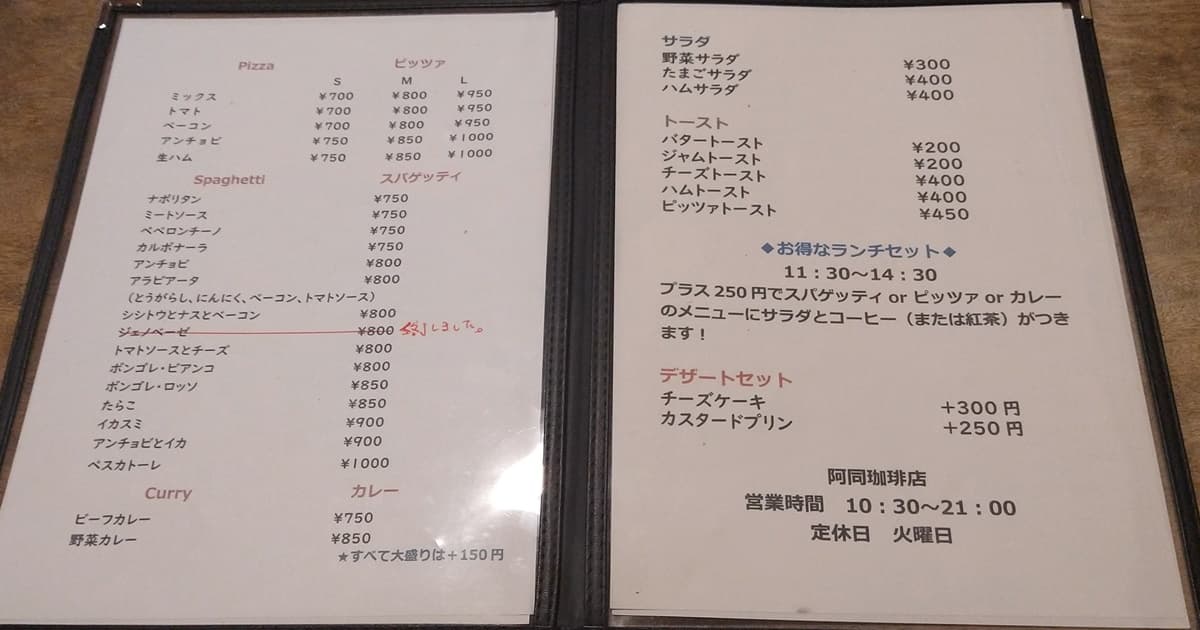 Pizza ピッツァ
S M L
ミックス ¥700 ¥800 ¥950
トマト ¥700 ¥800 ¥950
ベーコン ¥700 ¥800 ¥950
アンチョビ ¥750 ¥850 ¥1000
生ハム ¥750 ¥850 ¥1000
Spaghetti スパゲッティ
ナポリタン ¥750
ミートソース ¥750
ペペロンチーノ ¥750
カルボナーラ ¥750
アンチョビ ¥800
アラビアータ ¥800
(とうがらし、にんにく、ベーコン、トマトソース)
シシトウとナスとベーコン ¥800
ジェノベーゼ ¥800 終了しました。
トマトソースとチーズ ¥800
ボンゴレ・ビアンコ ¥800
ボンゴレ・ロッソ ¥850
たらこ ¥850
イカスミ ¥900
アンチョビとイカ ¥900
ペスカトーレ ¥1000
Curry カレー
ビーフカレー ¥750
野菜カレー ¥850
★すべて大盛りは+150円
サラダ
野菜サラダ ¥300
たまごサラダ ¥400
ハムサラダ ¥400
トースト
バタートースト ¥200
ジャムトースト ¥200
チーズトースト ¥400
ハムトースト ¥400
ピッツァトースト ¥450
◆お得なランチセット◆
11:30~14:30
プラス250円でスパゲッティ or ピッツァ or カレー
のメニューにサラダとコーヒー(または紅茶)がつき
ます!
デザートセット
チーズケーキ +300円
カスタードプリン +250円
阿同珈琲店
営業時間 10:30~21:00
定休日 火曜日